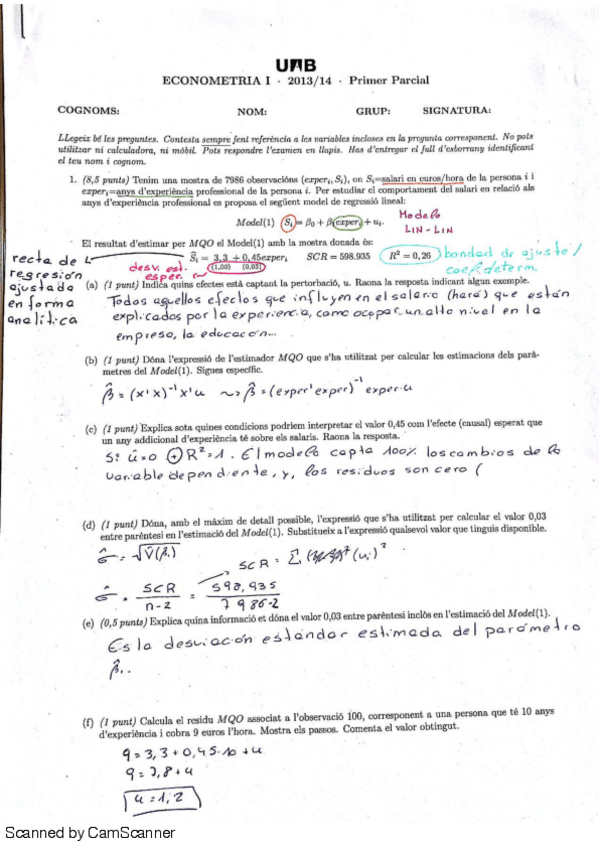 UAB
ECONOMETRIA I · 2013/14 · Primer Parcial
COGNOMS: NOM: GRUP: SIGNATURA:
LLegeix bé les preguntes. Contesta sempre fent referència a les variables incloses en la pregunta corresponent. No pots
utilitzar ni calculadora, ni mòbil. Pots respondre l'examen en llapis. Has d'entregar el full d'esborrany identificant
el teu nom i cognom.
1. (8,5 punts) Tenim una mostra de 7986 observacións (experᵢ, Sᵢ), on Sᵢ=salari en euros/hora de la persona i i
experᵢ=anys d'experiència professional de la persona i. Per estudiar el comportament del salari en relació als
anys d'experiència professional es proposa el següent model de regressió lineal:
Model(1) Sᵢ = β₀ + β₁experᵢ + uᵢ.
Modelo
LIN-LIN
El resultat d'estimar per MQO el Model(1) amb la mostra donada és:
Ŝᵢ = 3,3 + 0,45experᵢ SCR = 598.935 R² = 0,26
(1,00) (0,03)
bondad de ajuste/
coef. determ.
desv. est.
esper.
recta de
regresión
ajustada
en forma
analítica
(a) (1 punt) Indica quins efectes està captant la pertorbació, u. Raona la resposta indicant algun exemple.
Todos aquellos efectos que influyen en el salario (hora) que están
explicados por la experiencia, como ocupar un alto nivel en la
empresa, la educación...
(b) (1 punt) Dóna l'expressió de l'estimador MQO que s'ha utilitzat per calcular les estimacions dels parà-
metres del Model(1). Sigues específic.
β̂ = (x'x)⁻¹x'u ⤳ β̂ = (exper'exper)⁻¹ exper·u
(c) (1 punt) Explica sota quines condicions podriem interpretar el valor 0,45 com l'efecte (causal) esperat que
un any addicional d'experiència té sobre els salaris. Raona la resposta.
Si û=0 R²=1. El modelo capta 100% los cambios de la
variable dependiente, y, los residuos son cero (
(d) (1 punt) Dóna, amb el màxim de detall possible, l'expressió que s'ha utilitzat per calcular el valor 0,03
entre parèntesi en l'estimació del Model(1). Substitueix a l'expressió qualsevol valor que tinguis disponible.
σ̂ = √V̂(βᵢ)
SCR = Σ (uᵢ)²
σ̂ = SCR/n-2 = 598,935/7986-2
(e) (0,5 punts) Explica quina informació et dóna el valor 0,03 entre parèntesi inclòs en l'estimació del Model(1).
Es la desviación estándar estimada del parámetro
β̂₁.
(f) (1 punt) Calcula el residu MQO associat a l'observació 100, corresponent a una persona que té 10 anys
d'experiència i cobra 9 euros l'hora. Mostra els passos. Comenta el valor obtingut.
9 = 3,3 + 0,45·10 + u
9 = 7,8 + u
u = 1,2
Scanned by CamScanner